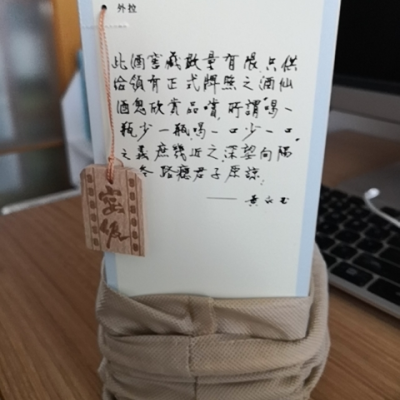 外拉
此酒窖藏数量有限只供
给领有正式牌照之酒仙
酒鬼欣赏品嚐所谓喝一
瓶少一瓶喝一口少一口
之義庶几近之深望向隅
各路瘾君子原諒
——黄永玉